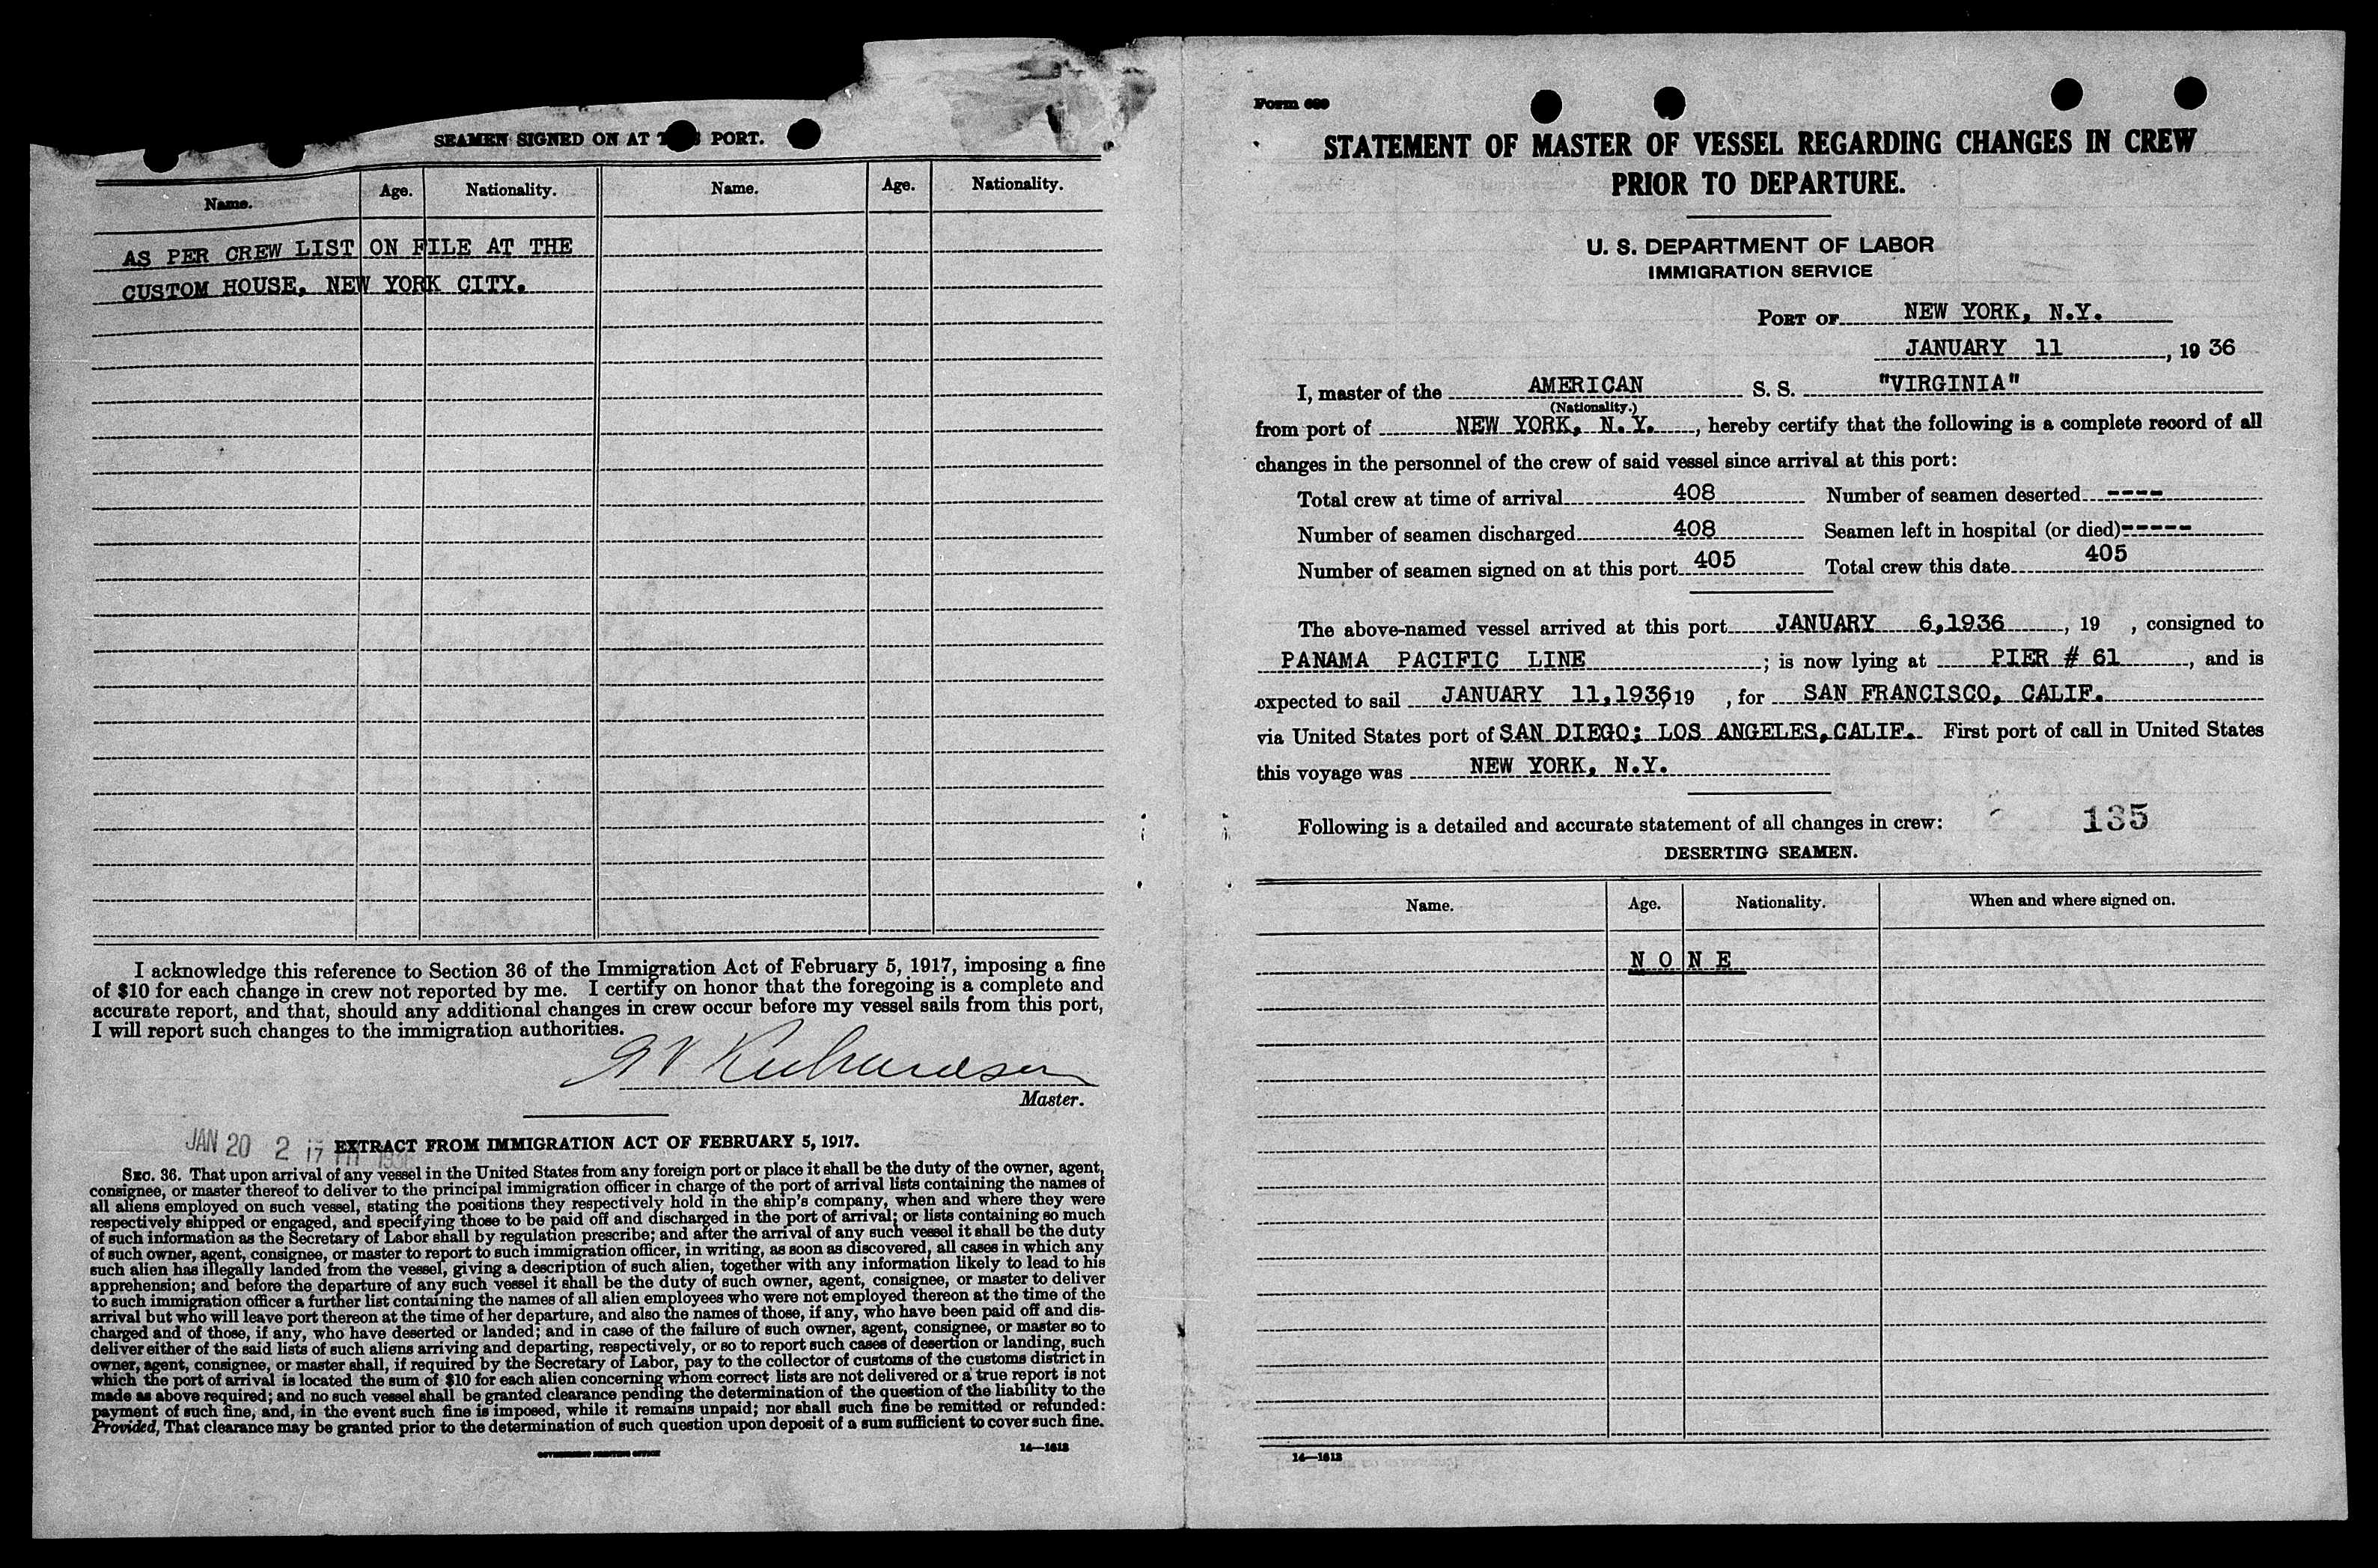 SEAMEN SIGNED ON AT PORT.
Name. Age. Nationality. Name. Age. Nationality.
AS PER CREW LIST ON FILE AT THE
CUSTOM HOUSE, NEW YORK CITY.
I acknowledge this reference to Section 36 of the Immigration Act of February 5, 1917, imposing a fine
of $10 for each change in crew not reported by me. I certify on honor that the foregoing is a complete and
accurate report, and that, should any additional changes in crew occur before my vessel sails from this port,
I will report such changes to the immigration authorities.
Richardson
Master.
JAN 20 2 17 PM
EXTRACT FROM IMMIGRATION ACT OF FEBRUARY 5, 1917.
SEC. 36. That upon arrival of any vessel in the United States from any foreign port or place it shall be the duty of the owner, agent,
consignee, or master thereof to deliver to the principal immigration officer in charge of the port of arrival lists containing the names of
all aliens employed on such vessel, stating the positions they respectively hold in the ship's company, when and where they were
respectively shipped or engaged, and specifying those to be paid off and discharged in the port of arrival; or lists containing so much
of such information as the Secretary of Labor shall by regulation prescribe; and after the arrival of any such vessel it shall be the duty
of such owner, agent, consignee, or master to report to such immigration officer, in writing, as soon as discovered, all cases in which any
such alien has illegally landed from the vessel, giving a description of such alien, together with any information likely to lead to his
apprehension; and before the departure of any such vessel it shall be the duty of such owner, agent, consignee, or master to deliver
to such immigration officer a further list containing the names of all alien employees who were not employed thereon at the time of the
arrival but who will leave port thereon at the time of her departure, and also the names of those, if any, who have been paid off and dis-
charged and of those, if any, who have deserted or landed; and in case of the failure of such owner, agent, consignee, or master so to
deliver either of the said lists of such aliens arriving and departing, respectively, or so to report such cases of desertion or landing, such
owner, agent, consignee, or master shall, if required by the Secretary of Labor, pay to the collector of customs of the customs district in
which the port of arrival is located the sum of $10 for each alien concerning whom correct lists are not delivered or a true report is not
made as above required; and no such vessel shall be granted clearance pending the determination of the question of the liability to the
payment of such fine, and, in the event such fine is imposed, while it remains unpaid; nor shall such fine be remitted or refunded:
Provided, That clearance may be granted prior to the determination of such question upon deposit of a sum sufficient to cover such fine.
GOVERNMENT PRINTING OFFICE 14—1612
Form 689
STATEMENT OF MASTER OF VESSEL REGARDING CHANGES IN CREW
PRIOR TO DEPARTURE.
U. S. DEPARTMENT OF LABOR
IMMIGRATION SERVICE
PORT OF NEW YORK, N.Y.
JANUARY 11, 1936
I, master of the AMERICAN S. S. "VIRGINIA"
(Nationality.)
from port of NEW YORK, N.Y., hereby certify that the following is a complete record of all
changes in the personnel of the crew of said vessel since arrival at this port:
Total crew at time of arrival 408 Number of seamen deserted ----
Number of seamen discharged 408 Seamen left in hospital (or died) -----
Number of seamen signed on at this port 405 Total crew this date 405
The above-named vessel arrived at this port JANUARY 6,1936, 19 , consigned to
PANAMA PACIFIC LINE; is now lying at PIER # 61, and is
expected to sail JANUARY 11,1936, 19 , for SAN FRANCISCO, CALIF.
via United States port of SAN DIEGO; LOS ANGELES, CALIF. First port of call in United States
this voyage was NEW YORK, N.Y.
Following is a detailed and accurate statement of all changes in crew: 135
DESERTING SEAMEN.
Name. Age. Nationality. When and where signed on.
NONE
14—1612